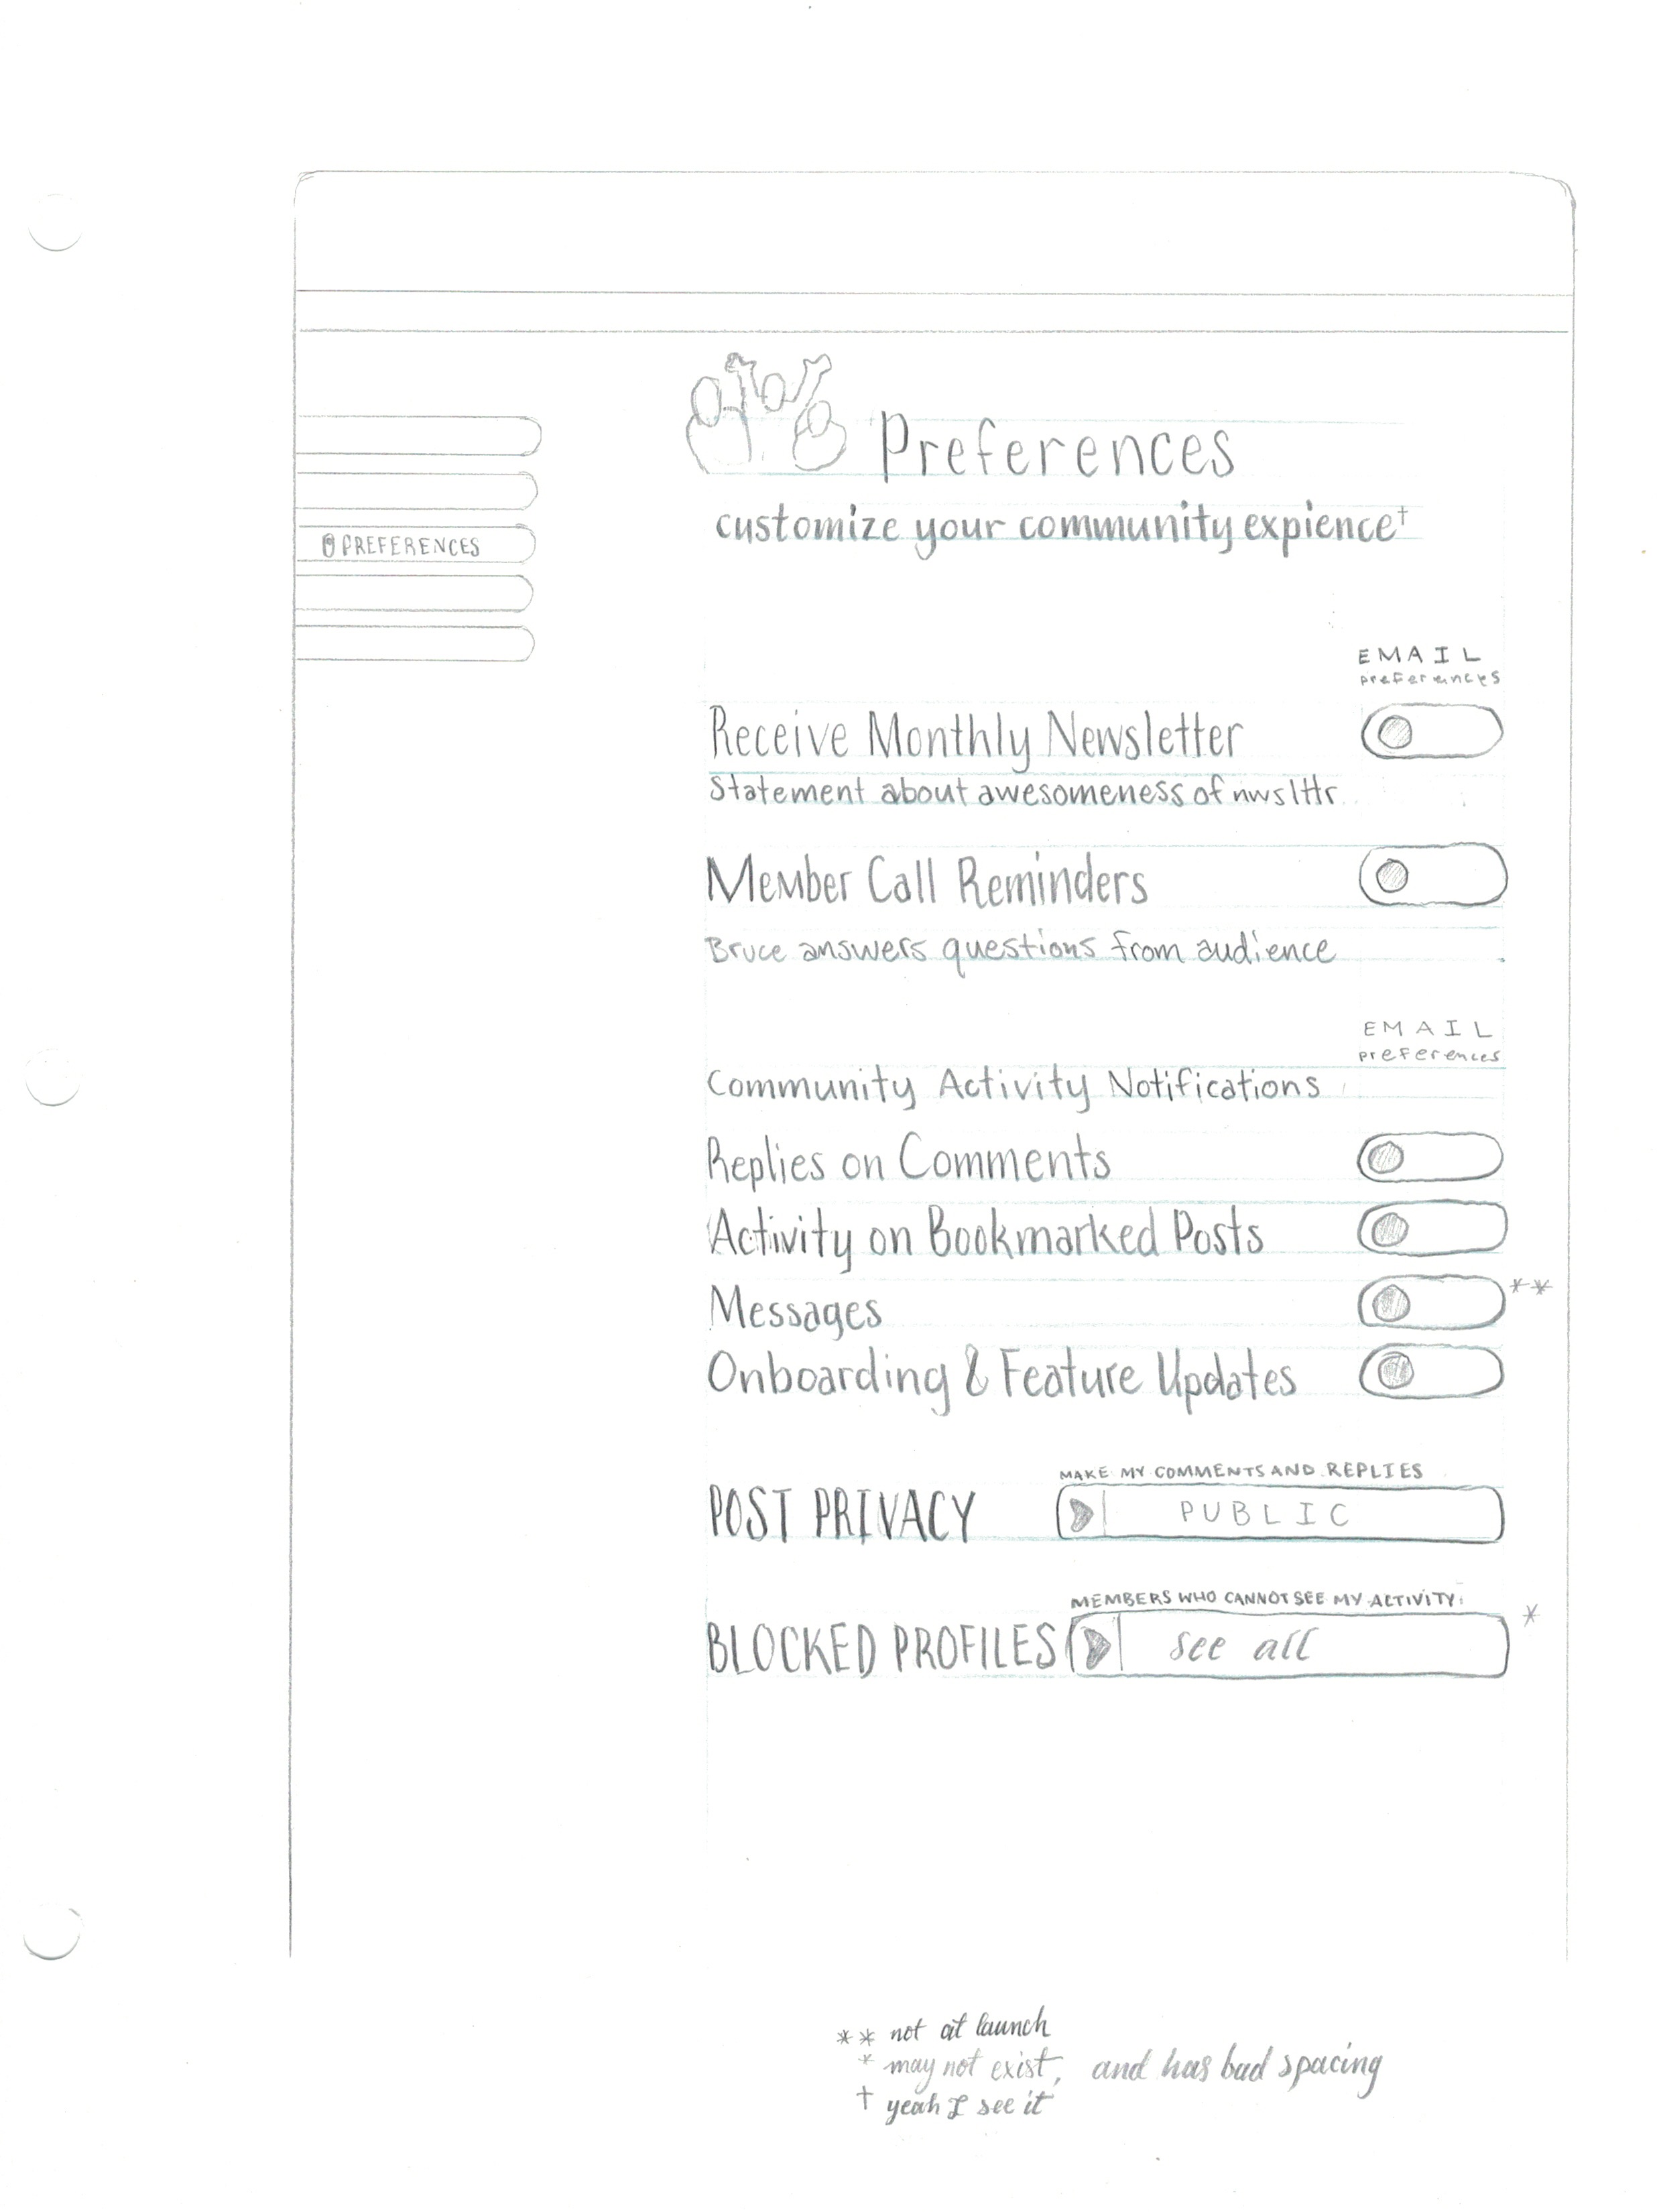 Preferences
customize your community expience†
PREFERENCES
EMAIL
preferences
Receive Monthly Newsletter
Statement about awesomeness of nwslttr
Member Call Reminders
Bruce answers questions from audience
EMAIL
preferences
Community Activity Notifications
Replies on Comments
Activity on Bookmarked Posts
Messages **
Onboarding & Feature Updates
MAKE MY COMMENTS AND REPLIES
POST PRIVACY PUBLIC
MEMBERS WHO CANNOT SEE MY ACTIVITY:
BLOCKED PROFILES see all *
** not at launch
* may not exist, and has bad spacing
† yeah I see it